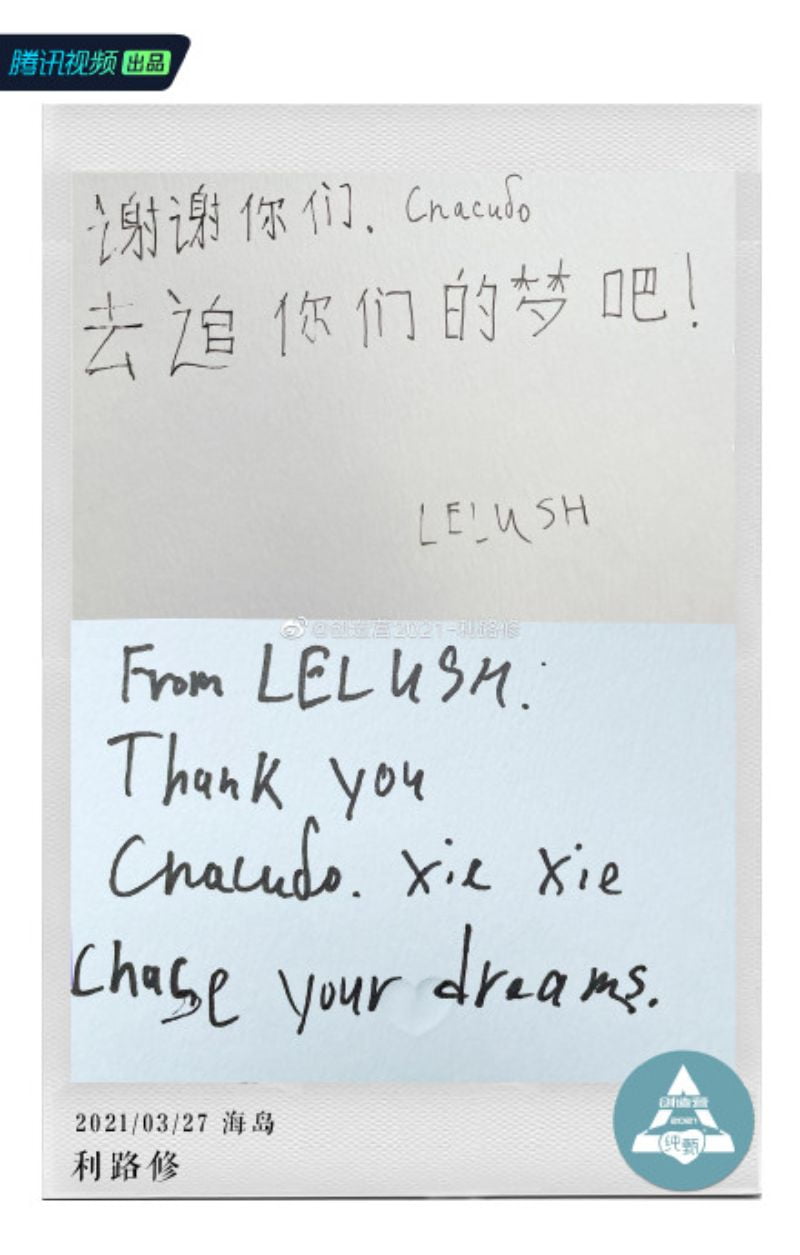 腾讯视频 出品
谢谢你们. Спасибо
去追你们的梦吧!
LELUSH
@创造营2021-利路修
From LELUSH.
Thank you
Спасибо. Xie Xie
Chase your dreams.
2021/03/27 海岛
利路修
创造营
2021
纯甄